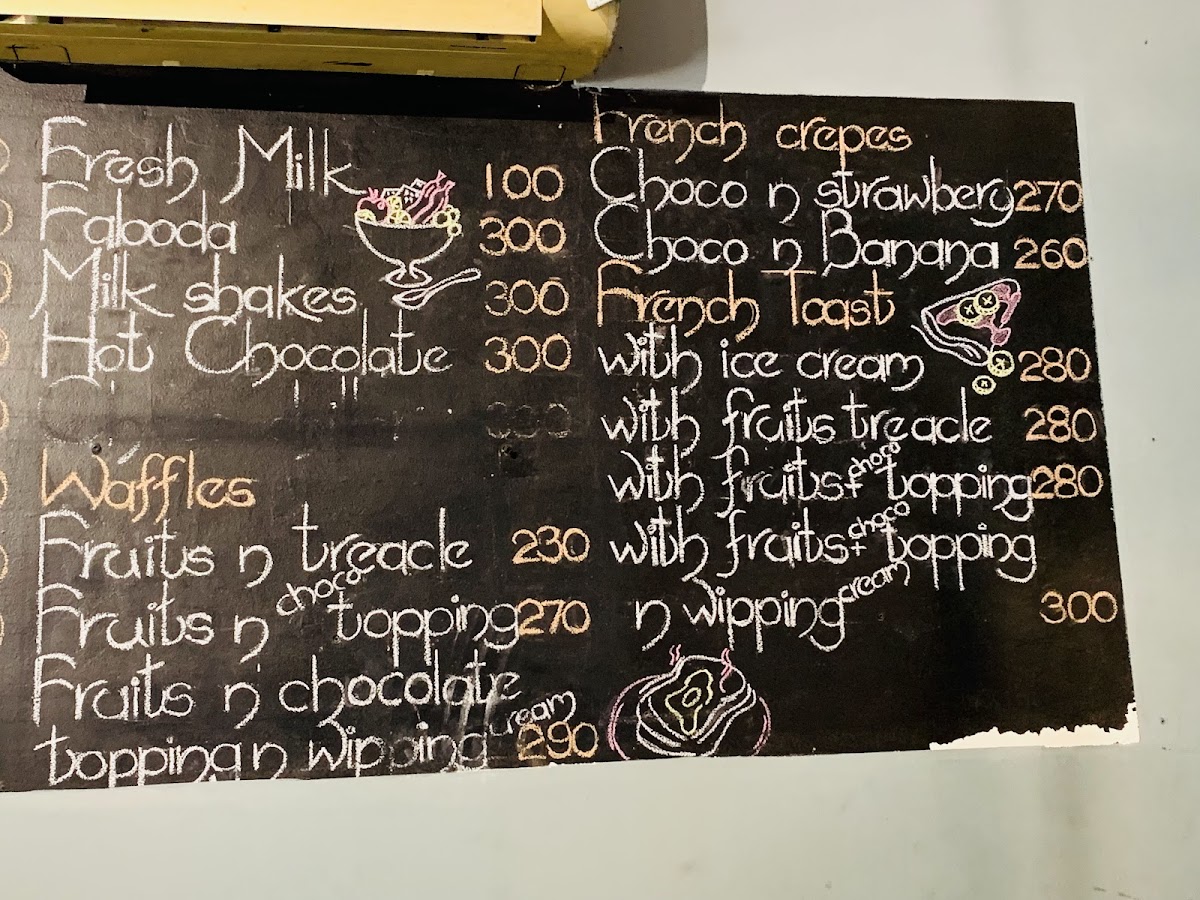 Fresh Milk 100
Falooda 300
Milk shakes 300
Hot Chocolate 300
Waffles
Fruits n treacle 230
Fruits n choco topping 270
Fruits n chocolate
topping n wipping cream 290
French crepes
Choco n strawbery 270
Choco n Banana 260
French Toast
with ice cream 280
with fruits treacle 280
with fruits + choco topping 280
with fruits + choco topping
n wipping cream 300